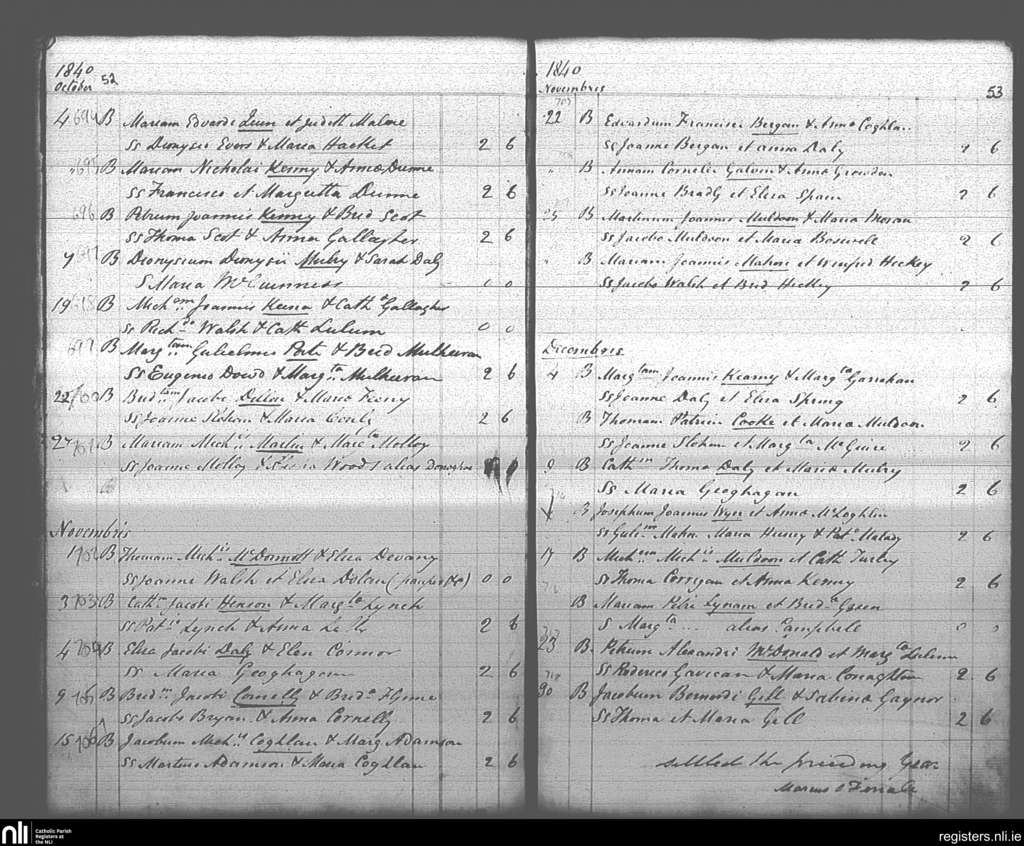 1840
October 52
4 694 B Mariam Edvardi Quin et Judith Malone
Ss Dionysio Evers & Maria Hacket 2 6
" 695 B Mariam Nicholai Kenny & Anna Dunne
Ss Francisco et Margaretta Dunne 2 6
696 B Petrum Joannis Kenny & Brid Scot
Ss Thoma Scot & Anna Gallagher 2 6
7 697 B Dionysium Dionysii Mulry & Sarah Daly
S Maria McGuinness 0 0
19 B Mich.am Joannis & Cath.a Gallagher
Ss Rich Walsh & Cath Lulum 0 0
B Marg.tam Gulielmi & Brid Mulheran
Ss Eugenio Dowd & Marg.ta Mulheran 2 6
22 700 B Brid Jacobi & Maria Feeny
Ss Joanne Slohan & Maria 2 6
27 701 B Mariam Mich.is & Marg.ta Molloy
Ss Joanne Molloy & Woods alias Donoghoe
Novembris
1 702 B Thomam Mich.is McDermott & Eliza Devany
Ss Joanne Walsh et Eliza Dolan (pauper) 0 0
3 703 B Cath.m Jacobi Henson & Marg.ta Lynch
Ss Pat Lynch & Anna 2 6
4 704 B Eliza Jacobi Daly & Elen Connor
Ss Maria Geoghagan 2 6
9 705 B Brid.m Jacobi Cornelly & Brid.a Flynne
Ss Jacobo Bryan & Anna Cornelly 2 6
15 706 B Jacobum Mich.is Coghlan & Marg Adamson
Ss Martino Adamson & Maria Coghlan 2 6
1840
Novembris 53
22 B Edvardum Francisci Bergan & Anna Coghlan
Ss Joanne Bergan et Anna Daly 2 6
" B Annam Cornelii Galvin & Anna
Ss Joanne Bradly et Eliza Spain 2 6
25 B Martinum Joannis Muldoon & Maria Moran
Ss Jacobo Muldoon et Maria Boswell 2 6
" B Mariam Joannis Mahon et Winifrid Hickey
Ss Jacobo Walsh et Brid Hickey 2 6
Decembris
4 B Marg.tam Joannis Kearny & Marg.ta Garrahan
Ss Joanne Daly et Eliza Spring 2 6
B Thomam Patricii Cooke et Maria Muldoon
Ss Joanne Slohan et Marg.ta McGuire 2 6
9 B Cath.m Thoma Daly et Maria Mulry
Ss Maria Geoghagan 2 6
B Josephum Joannis Wyer et Anna McLoghlin
Ss Guli Maher Maria Henry & Pat Malady 2 6
17 B Mich.em Mich.is Muldoon et Cath Turley
Ss Thoma Corrigan et Anna Kenny 2 6
B Mariam Petri Lynam et Brid.a Green
S Marg.ta .... alias Camphell 0 0
23 B Petrum Alexandri McDonald et Marg.ta Lulum
Ss Roderico Gavican & Maria Conaghton 2 6
30 B Jacobum Bernardi Gill & Sabina Gaynor
Ss Thoma et Maria Gill 2 6
settled the preceding Year
Marcus O'Ferrall
nli
Catholic Parish
Registers at
the NLI
registers.nli.ie